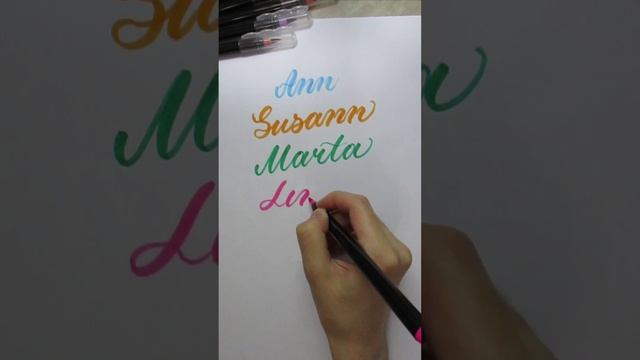 Ann
Susann
Marta
Len